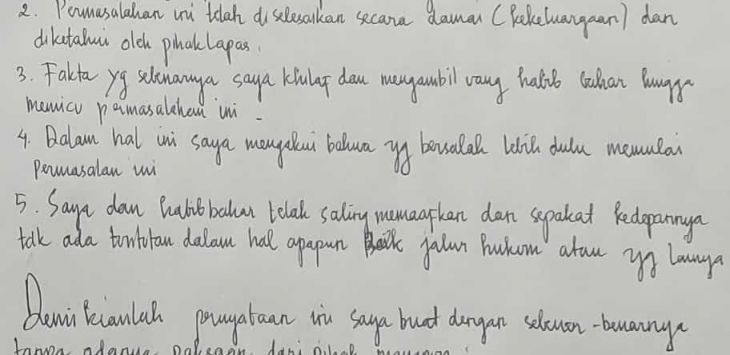 2. Permasalahan ini telah diselesaikan secara damai (kekeluargaan) dan
diketahui oleh pihak lapas.
3. Fakta yg sebenarnya saya khilaf dan mengambil uang habib bahar hingga
memicu permasalahan ini.
4. Dalam hal ini saya mengakui bahwa yg bersalah lebih dulu memulai
permasalan ini
5. Saya dan habib bahar telah saling memaafkan dan sepakat kedepannya
tdk ada tuntutan dalam hal apapun baik jalur hukum atau yg lainya
Demikianlah pernyataan ini saya buat dengan sebenar-benarnya
tanpa adanya paksaan dari pihak manapun.